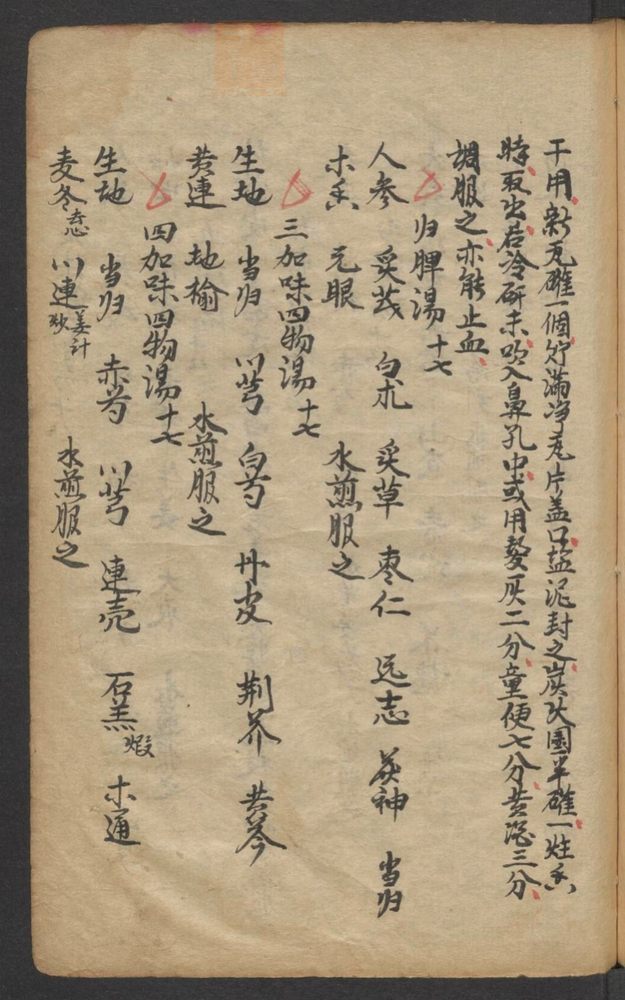 干用新瓦礶一個貯滿净瓦片盖口盐泥封之炭火圍半礶一炷香
時取出居冷研末吹入鼻孔中或用髮灰二分童便七分黄酒三分
調服之亦能止血
归脾湯十七
人參 炙芪 白朮 炙草 枣仁 远志 茯神 当归
木香 元眼 水煎服之
三加味四物湯十七
生地 当归 川芎 白芍 丹皮 荆芥 黄芩
黄連 地榆 水煎服之
四加味四物湯十七
生地 当归 赤芍 川芎 連壳 石羔煅 木通
麦冬去心 川連姜汁炒 水煎服之